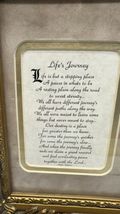 Life's Journey
Life is but a stopping place
A pause in what's to be
A resting place along the road
to sweet eternity.
We all have different journeys
different paths along the way
We all were meant to learn some
things but never meant to stay...
Our destination is a place
far greater than we know.
For some the journey's quicker
For some the journey's slow.
And when the journey finally
ends we'll claim a great reward
and find everlasting peace
together with the Lord.